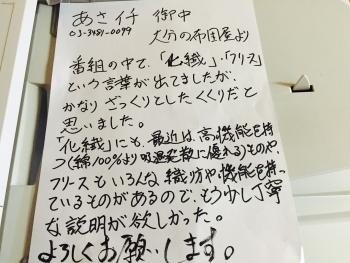 あさイチ 御中
03-3481-0099
大分の布団屋より
番組の中で、「化繊」・「フリース」
という言葉が出てましたが、
かなりざっくりとしたくくりだと
思いました。
「化繊」にも、最近は、高機能を持
つ(綿100%より吸湿発散に優れる)ものや、
フリースもいろんな織り方や機能を持っ
ているものがあるので、もう少し丁寧
な説明が欲しかった。
よろしくお願いします。